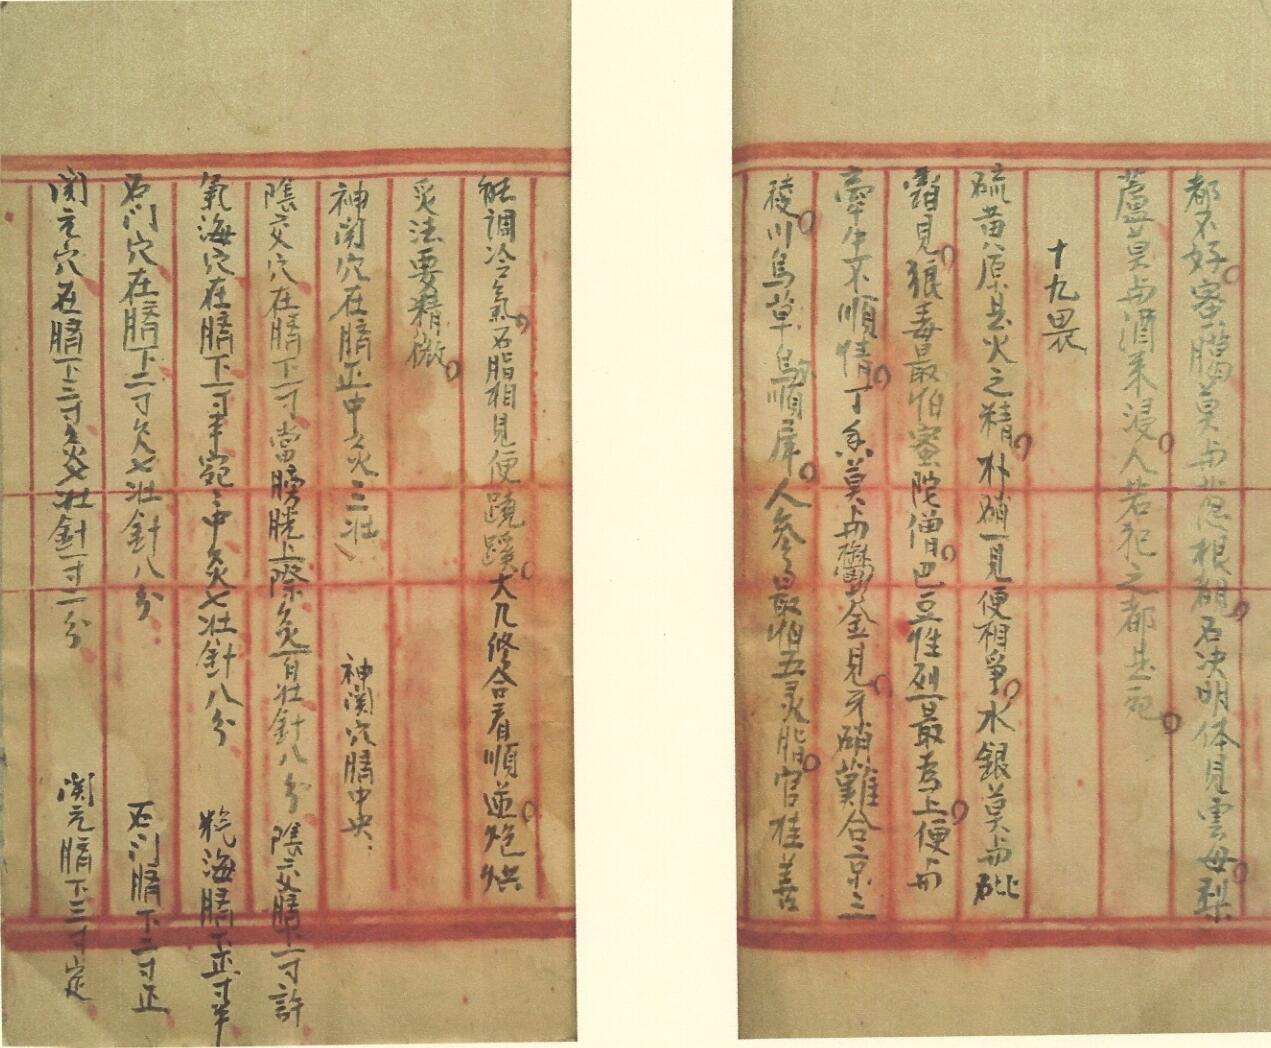 都不好蜜臈莫与葱根覩石决明休見雲母梨
蘆莫与酒来浸人若犯之都是寃
十九畏
硫黄原是火之精朴硝一見便相爭水銀莫与砒
霜見狼毒最怕蜜陀僧巴豆性列最為上便与
牽牛不順情丁香莫与欝金見牙硝難合京三
稜川烏草烏順犀人参最怕五灵脂官桂善
能調冷氣石脂相見便蹺蹊大凡修合看順逆炮𤊲
炙法要精微
神関穴在臍正中灸三壮 神関穴臍中央
陰交穴在臍下一寸當膀胱上際灸百壮針八分 陰交臍下一寸許
氣海穴在臍下一寸半宛〻中灸七壮針八分 氣海臍下正寸半
石门穴在臍下二寸灸七壮針八分 石门臍下二寸正
関元穴在臍下三寸灸七壮針一寸二分 関元臍下三寸定